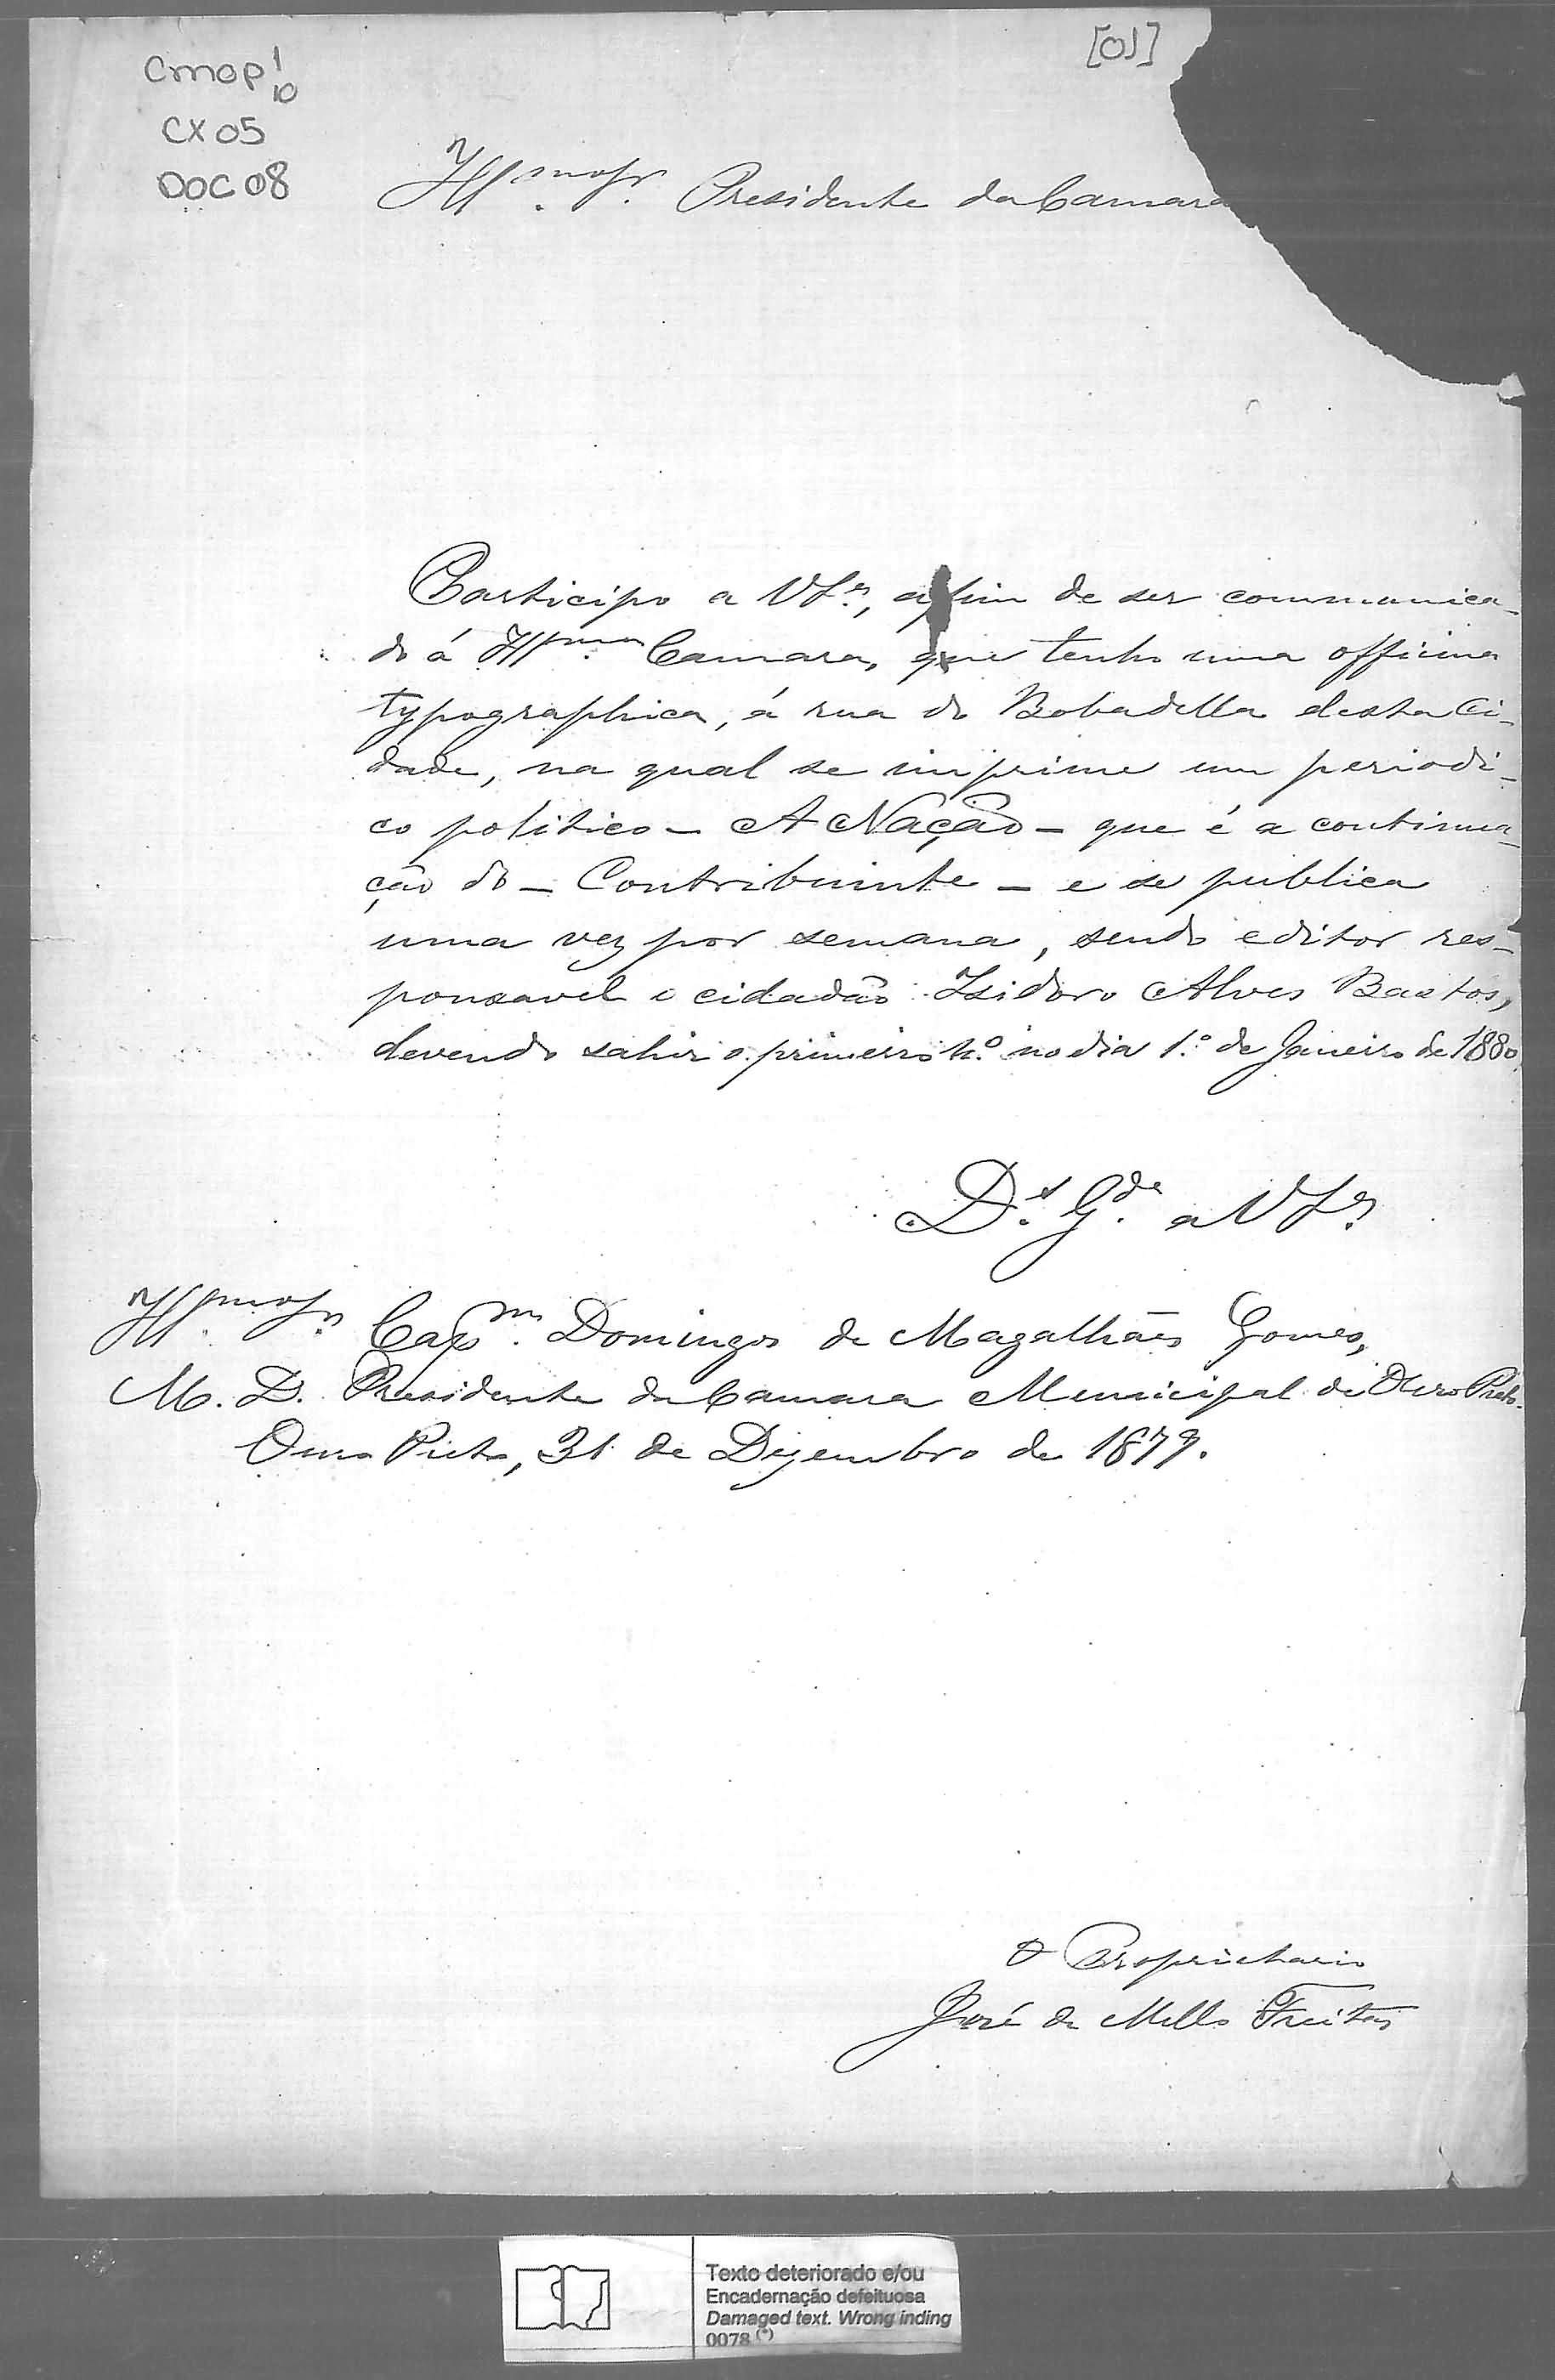 [01]
Cmop 1/10
CX 05
DOC 08
Illmo Sr. Presidente da Camara
Participo a V Sa, afim de ser communica-
do á Illma Camara, que tenho uma officina
typographica, á rua do Bobadella desta Ci-
dade, na qual se imprime um periodi-
co politico - A Nação - que é a continua-
ção do - Contribuinte - e se publica
uma vez por semana, sendo editor res-
ponsavel o cidadão Isidoro Alves Bastos,
devendo sahir o primeiro n.º no dia 1.º de Janeiro de 1880.
Ds. Gde. a V Sa
Illmo Sr. Capm. Domingos de Magalhães Gomes,
M. D. Presidente da Camara Municipal de Ouro Preto.
Ouro Preto, 31 de Dezembro de 1879.
O Proprietario
José de Mello Freitas
Texto deteriorado e/ou
Encadernação defeituosa
Damaged text. Wrong inding
0078 (*)